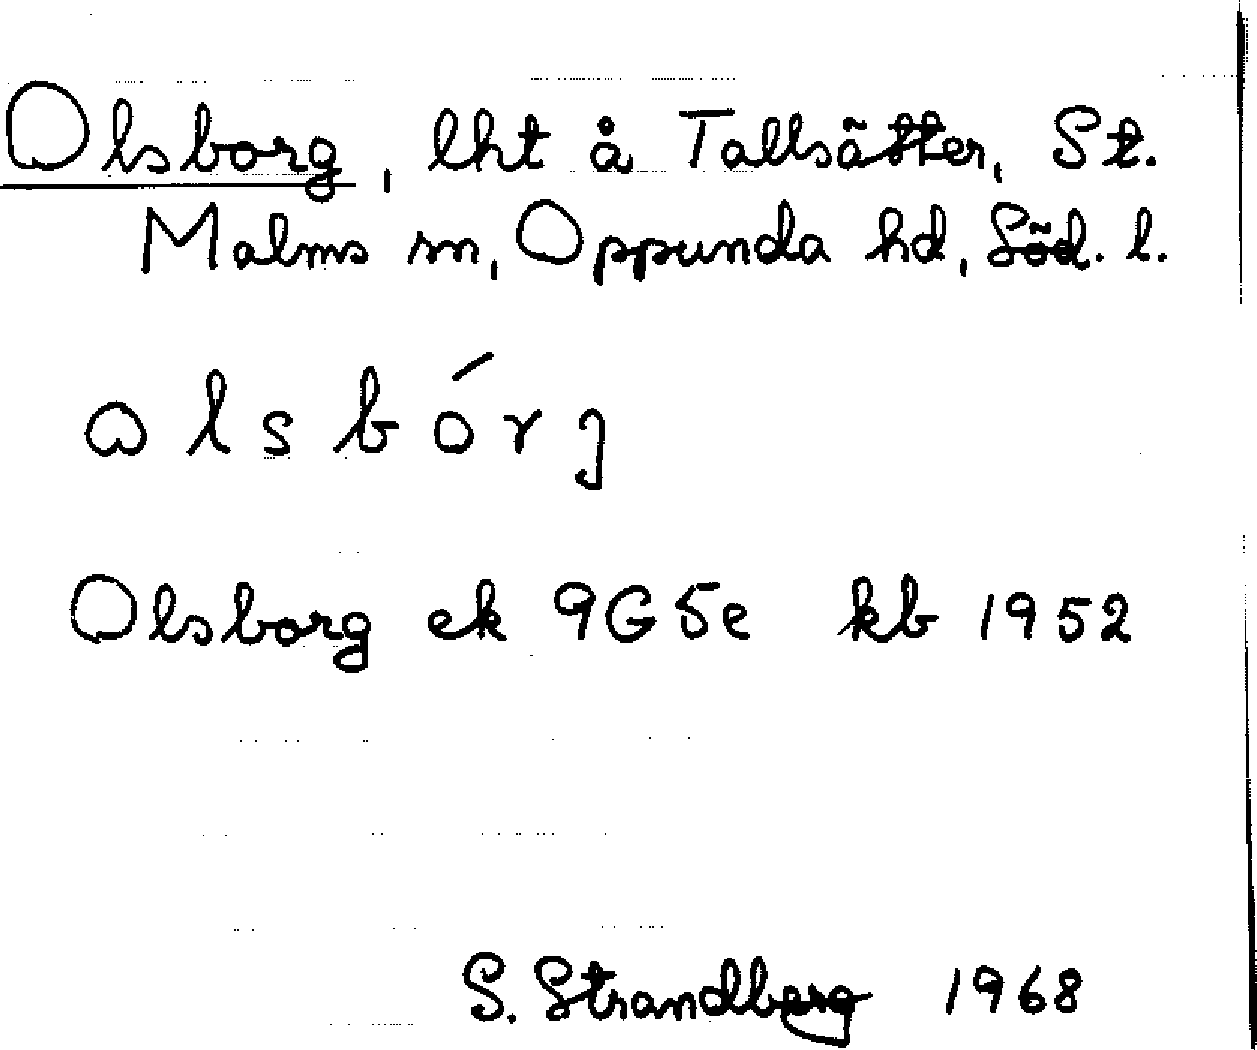 Olsborg, lht å Tallsätter, St.
Malms sn, Oppunda hd, Söd. l.
ωlsbórj
Olsborg ek 9G5e kb 1952
S. Strandberg 1968